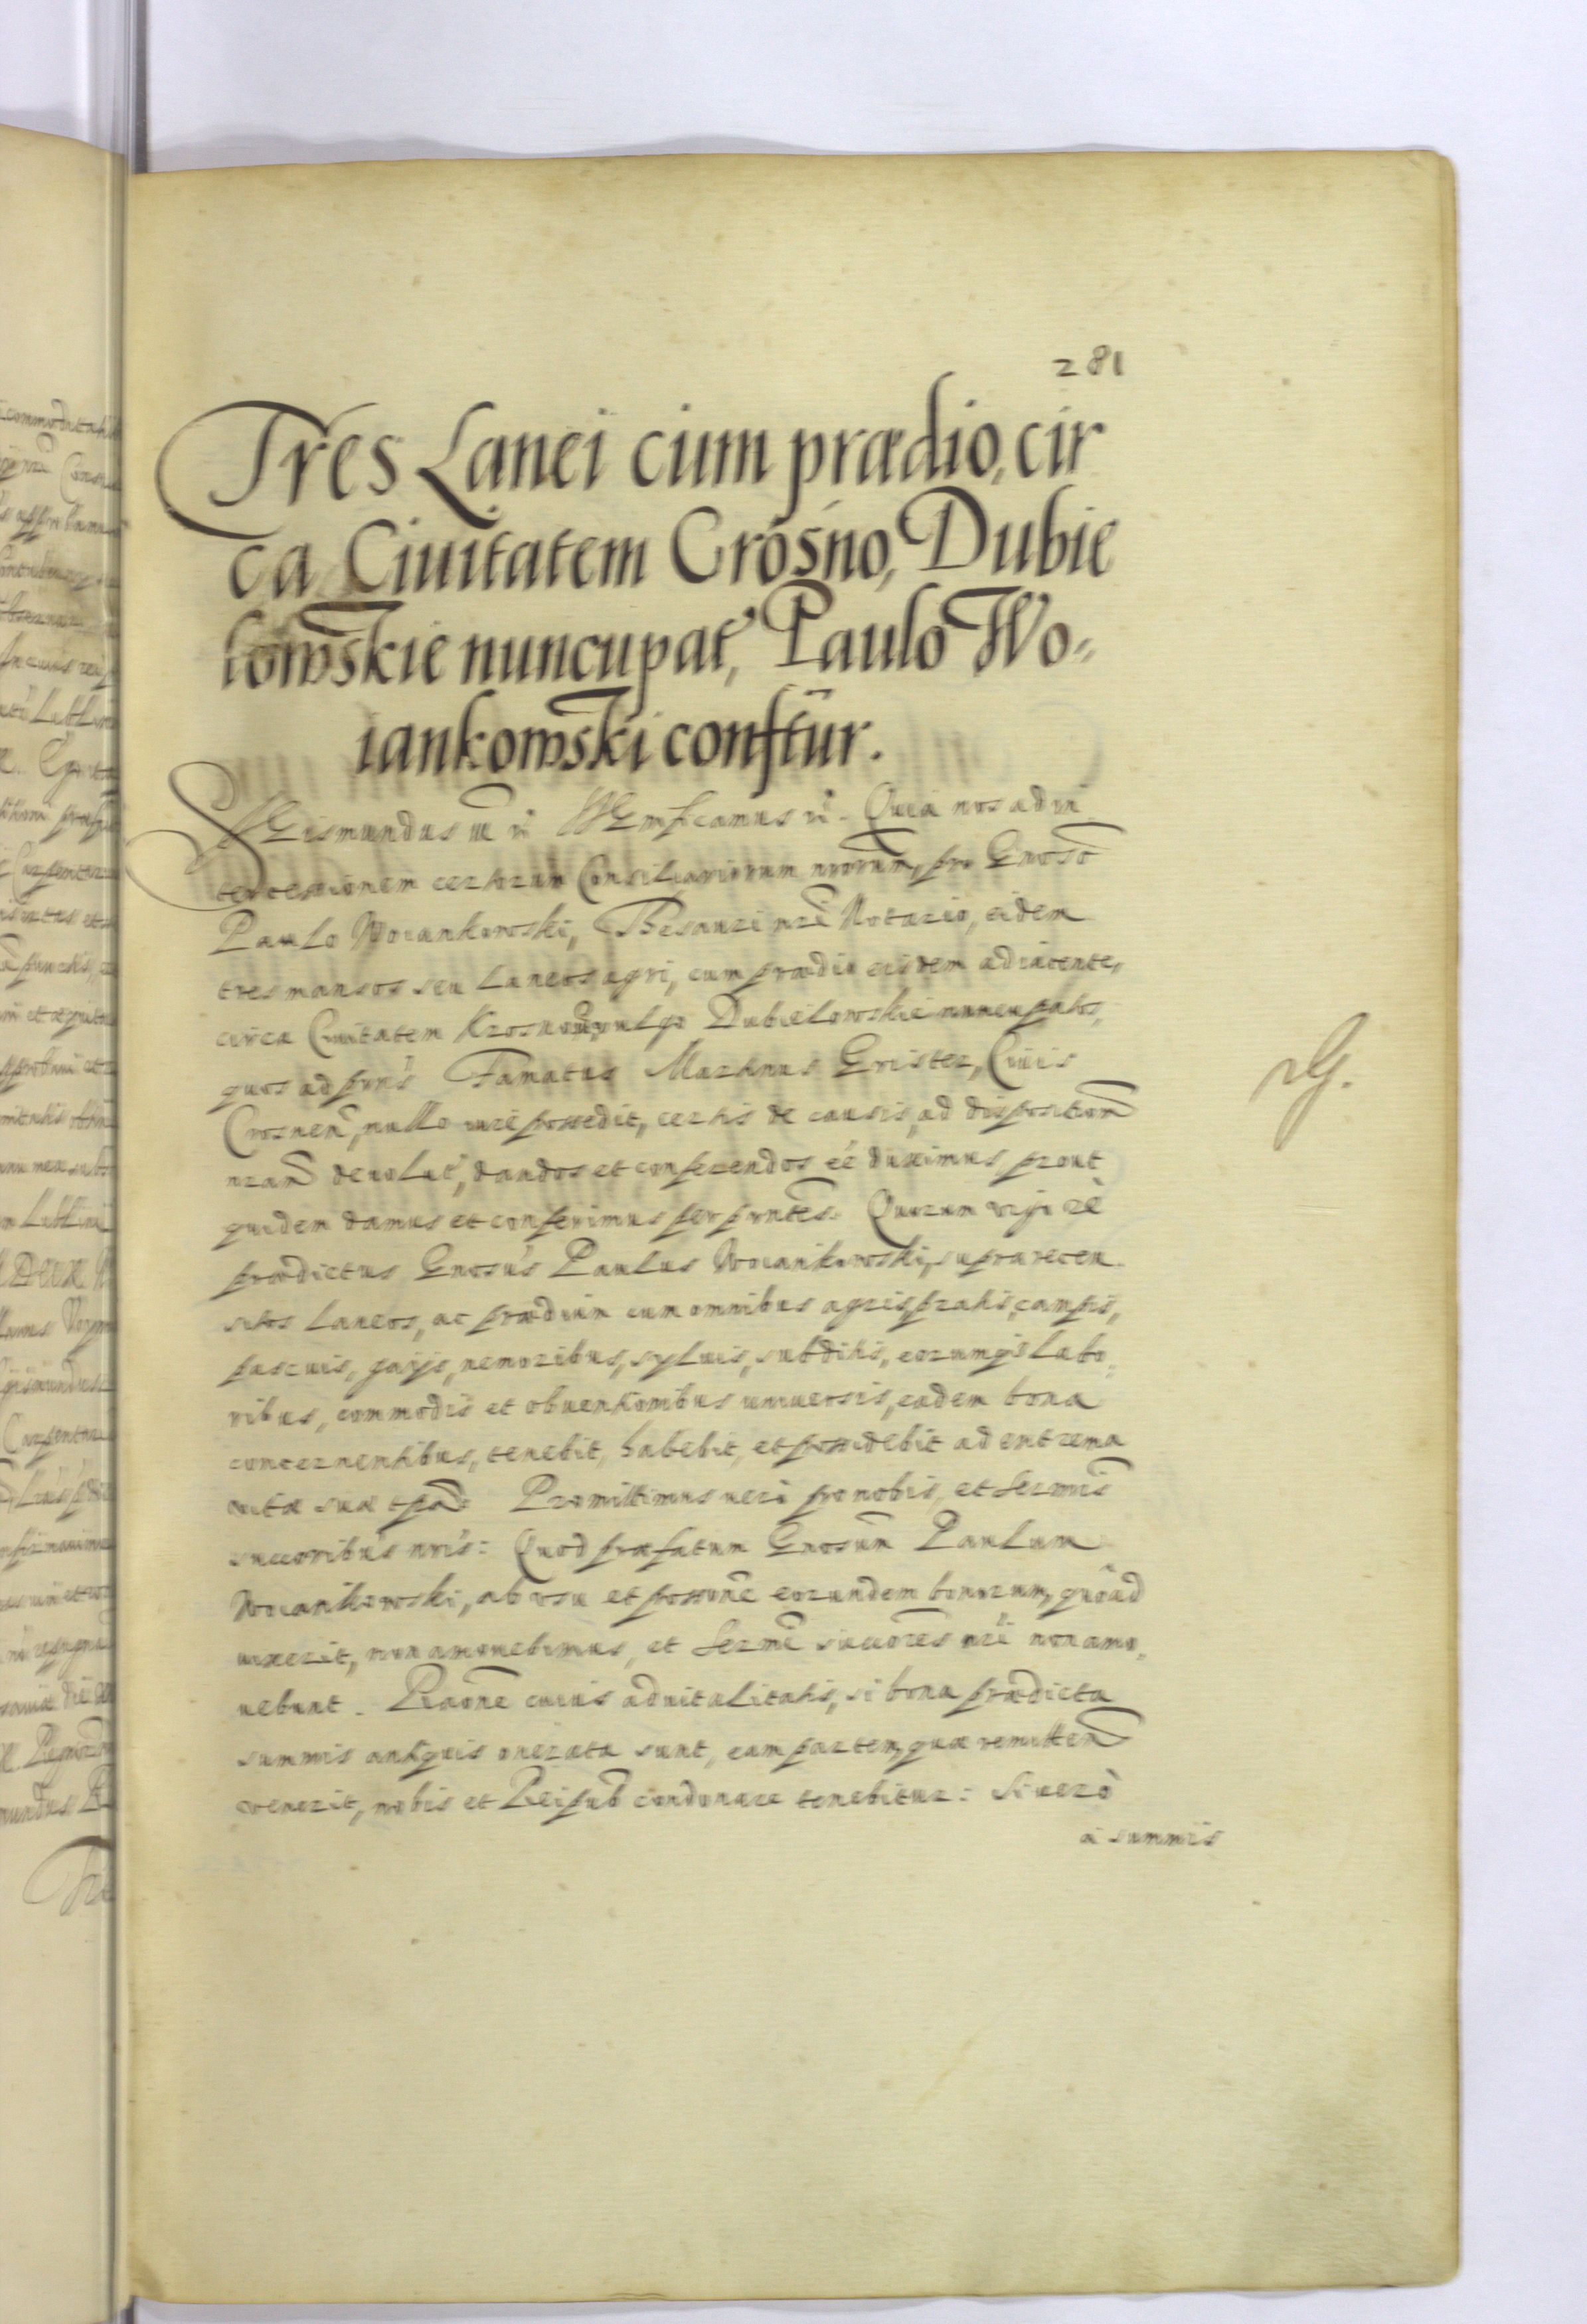 281
Tres Lanei cum prædio, cir
ca Ciuitatem Crosno, Dubie
lowskie nuncupat', Paulo Wo=
iankowski conftur.
Sigismundus III etc. Significamus etc. Quia nos ad in
tercessionem certorum Consiliariorum nrorum, pro Gnoso
Paulo Woiankowski, Thesauri nri Notario, eidem
tres mansos seu Laneos agri, cum prædio eisdem adiacente,
circa Ciuitatem Krosno vulgo Dubielowskie nuncupatos,
quos ad pns Famatus Martinus Grister, Ciuis
Crosnen, nullo iure possedit, certis de causis, ad dispositionem
nram deuolut', dandos et conferendos ee duximus prout
quidem damus et conferimus per pntes. Quorum vigore
prædictus Gnosus Paulus Woiankowski, supra recen
sitos Laneos, ac prædium cum omnibus agris, pratis, campis,
pascuis, gajis, nemoribus, syluis, subditis, eorumq3 Labo=
ribus, commodis et obuentionibus uniuersis, eadem bona
concernentibus, tenebit, habebit, et possidebit ad extrema
vitæ suæ tpa. Promittimus uero pro nobis, et Sermis
succoribus nris: Quod præfatum Gnosum Paulum
Woiankowski, ab vsu et possione eorundem bonorum, quoad
uixerit, non amouebimus, et Sermi succores nri non amo=
uebunt. Raone cuius aduitalitatis, si bona prædicta
summis antiquis onerata sunt, eam partem, quæ remitten
venerit, nobis et Reipub condonare tenebitur: Si uero
a summis